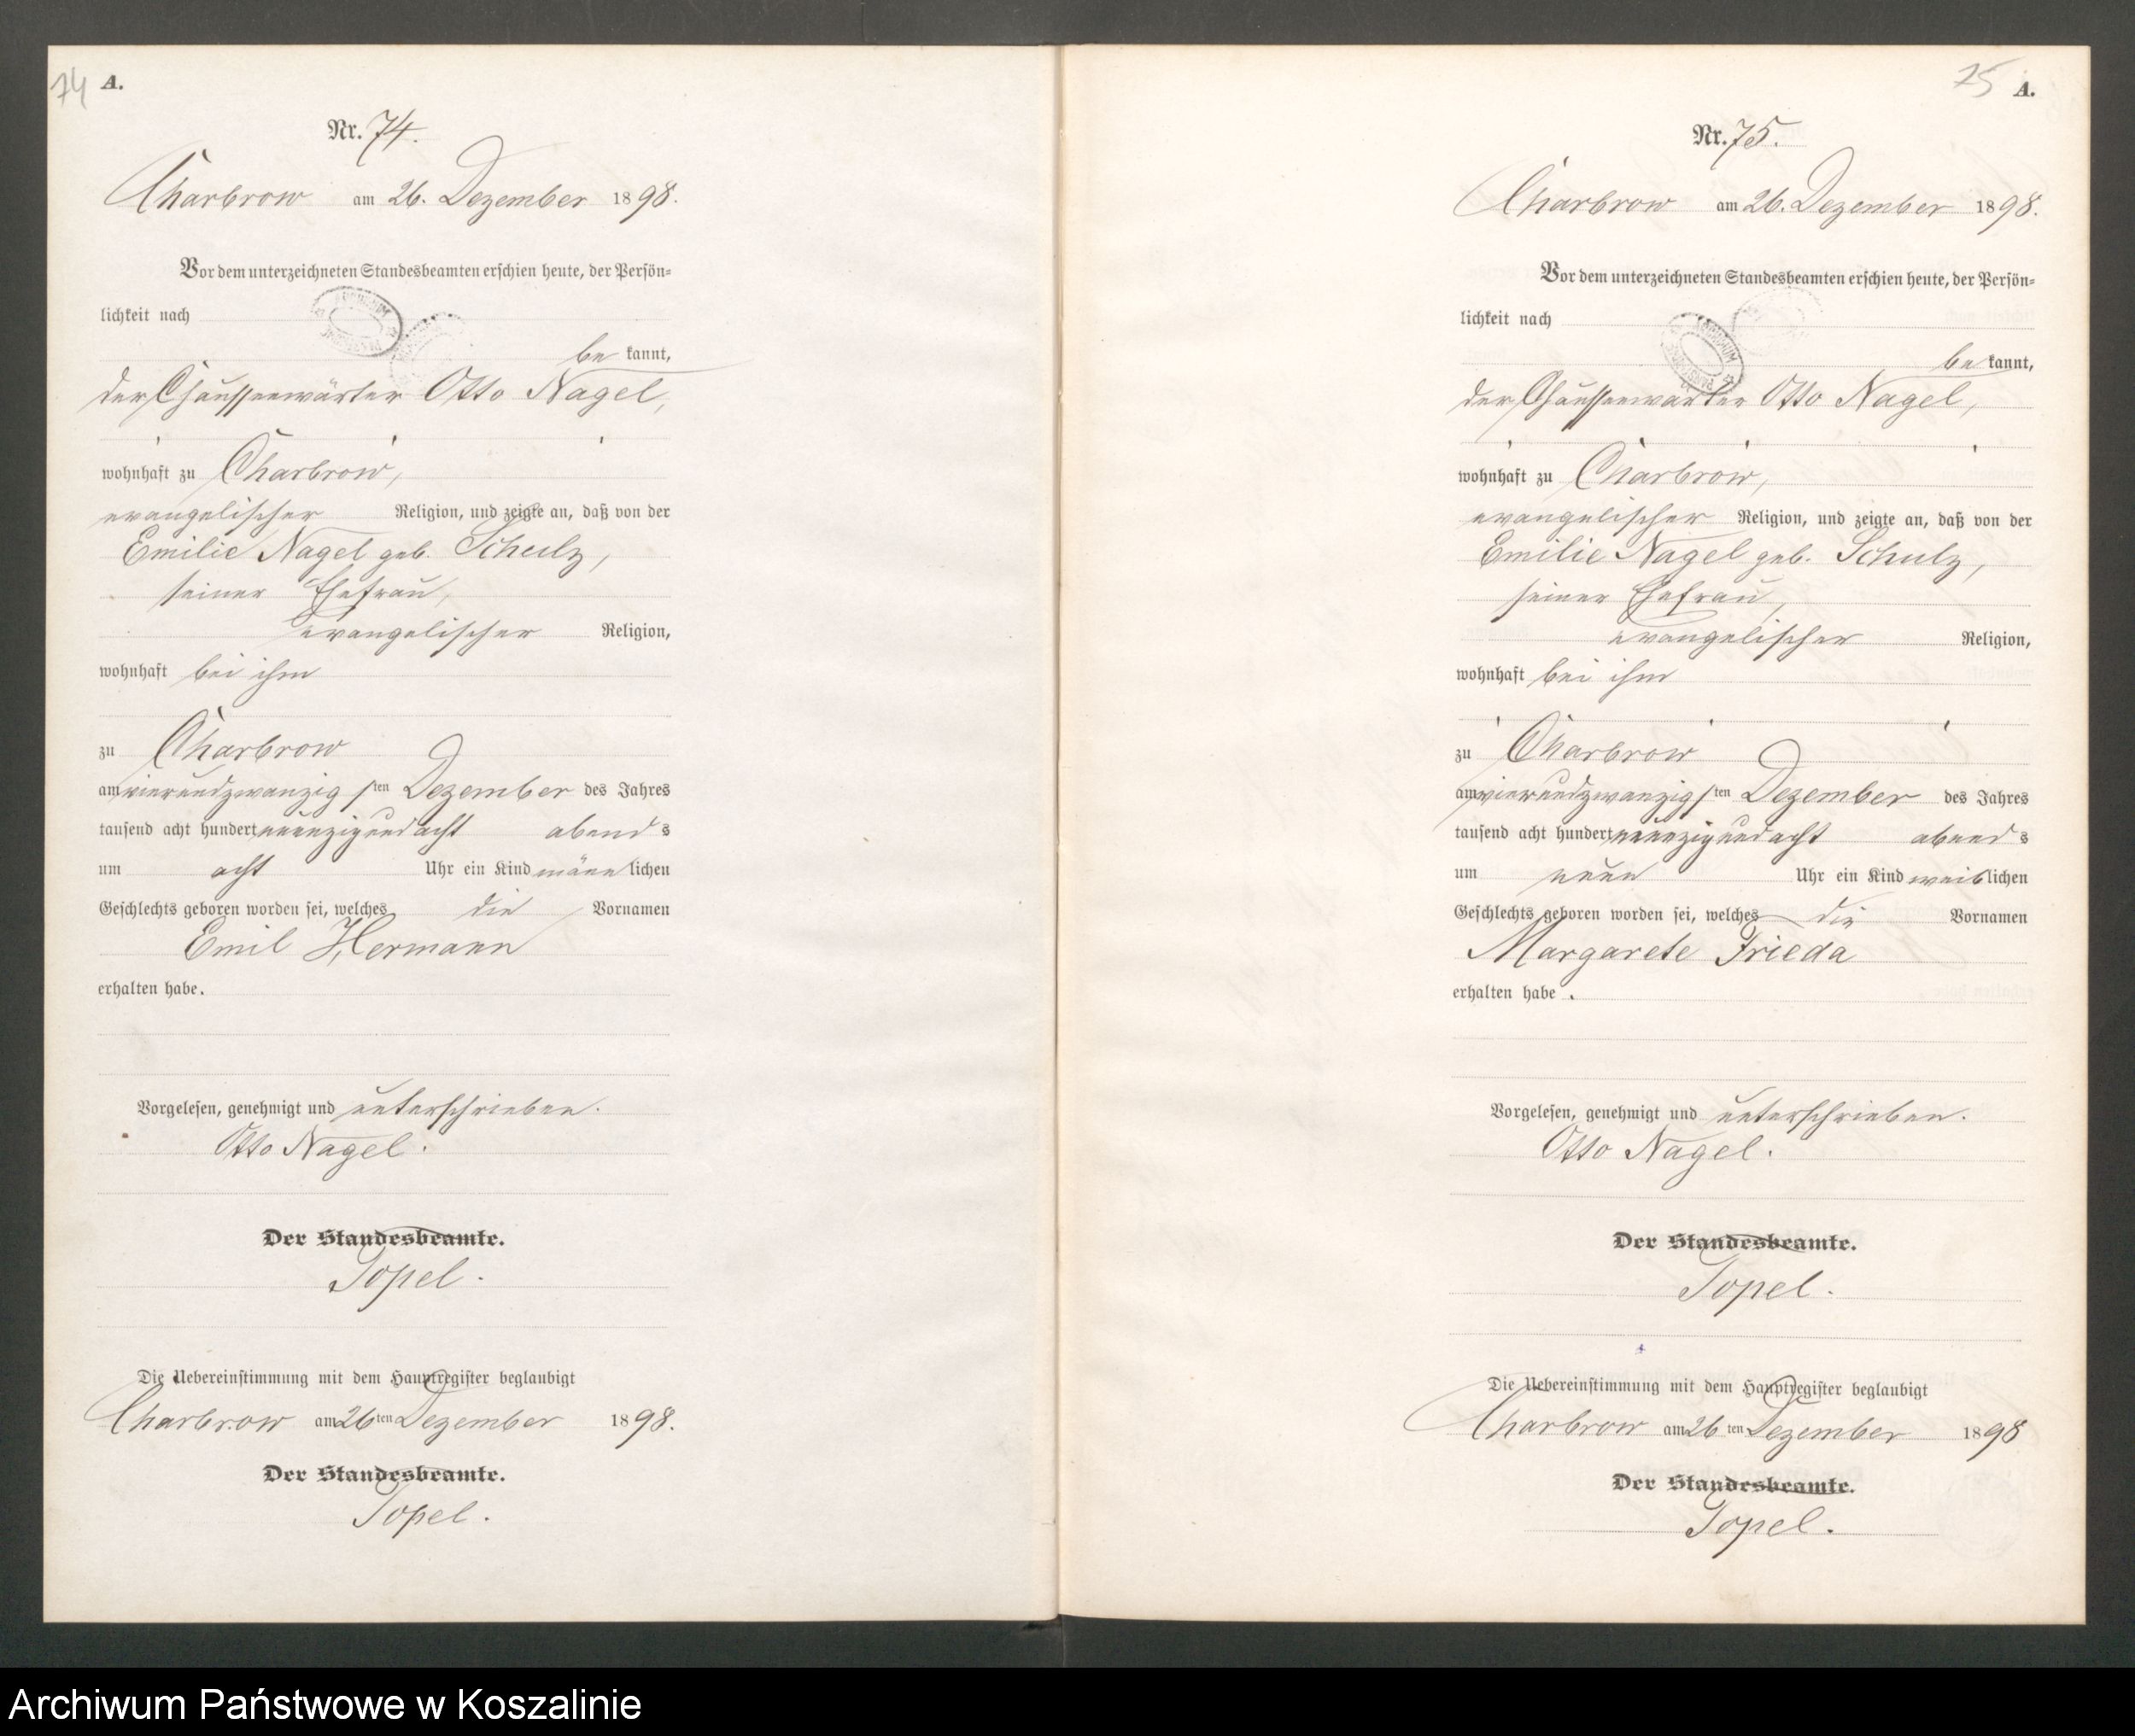 74 A.
Nr. 74.
Charbrow am 26. Dezember 1898.
Vor dem unterzeichneten Standesbeamten erschien heute, der Persön=
lichkeit nach
be kannt,
der Chausseewärter Otto Nagel,
wohnhaft zu Charbrow,
evangelischer Religion, und zeigte an, daß von der
Emilie Nagel geb. Schulz,
seiner Ehefrau,
evangelischer Religion,
wohnhaft bei ihm
zu Charbrow
am vierundzwanzigsten Dezember des Jahres
tausend acht hundert neunzig und acht abends
um acht Uhr ein Kind männlichen
Geschlechts geboren worden sei, welches die Vornamen
Emil Hermann
erhalten habe.
Vorgelesen, genehmigt und unterschrieben.
Otto Nagel.
Der Standesbeamte.
Topel.
Die Uebereinstimmung mit dem Hauptregister beglaubigt
Charbrow am 26ten Dezember 1898.
Der Standesbeamte.
Topel.
75 A.
Nr. 75.
Charbrow am 26. Dezember 1898.
Vor dem unterzeichneten Standesbeamten erschien heute, der Persön=
lichkeit nach
be kannt,
der Chausseewärter Otto Nagel,
wohnhaft zu Charbrow,
evangelischer Religion, und zeigte an, daß von der
Emilie Nagel geb. Schulz,
seiner Ehefrau,
evangelischer Religion,
wohnhaft bei ihm
zu Charbrow
am vierundzwanzigsten Dezember des Jahres
tausend acht hundert neunzig und acht abends
um neun Uhr ein Kind weiblichen
Geschlechts geboren worden sei, welches die Vornamen
Margarete Frieda
erhalten habe.
Vorgelesen, genehmigt und unterschrieben.
Otto Nagel.
Der Standesbeamte.
Topel.
Die Uebereinstimmung mit dem Hauptregister beglaubigt
Charbrow am 26ten Dezember 1898
Der Standesbeamte.
Topel.
Archiwum Państwowe w Koszalinie